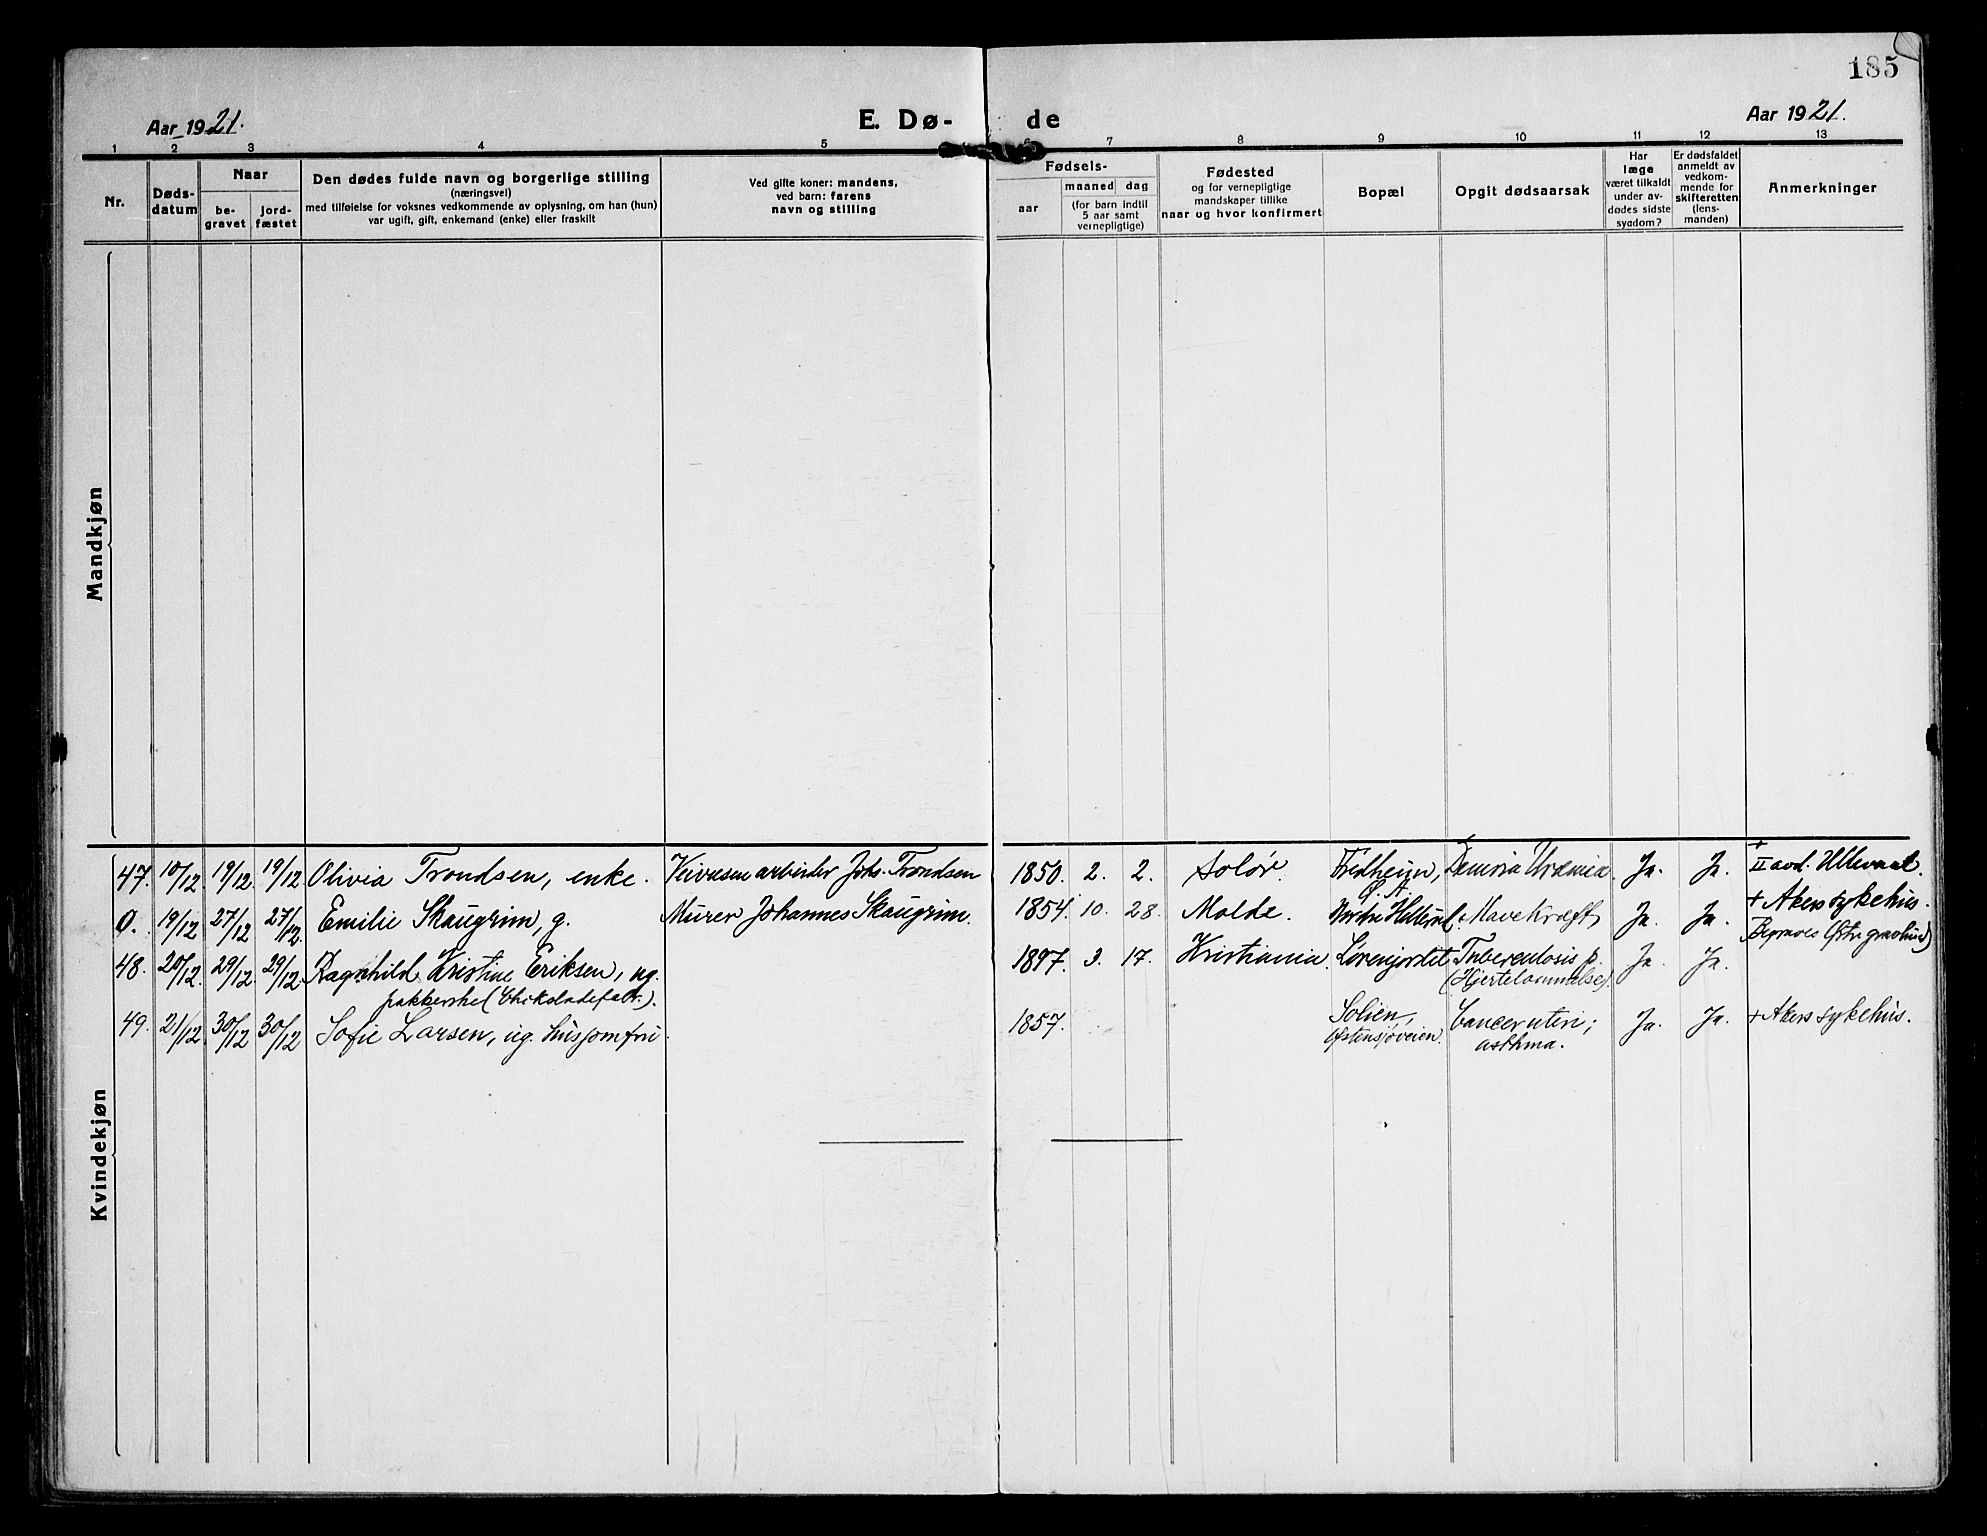 185
Aar 1921.
E. Dø- de
Aar 1921.
1 2 3 4 5 6 7 8 9 10 11 12 13
Nr.
Døds-
datum
Naar
be-
gravet
jord-
fæstet
Den dødes fulde navn og borgerlige stilling
(næringsvei)
med tilføielse for voksnes vedkommende av oplysning, om han (hun)
var ugift, gift, enkemand (enke) eller fraskilt
Ved gifte koner: mandens,
ved barn: farens
navn og stilling
Fødsels-
aar
maaned dag
(for barn indtil
5 aar samt
vernepligtige)
Fødested
og for vernepligtige
mandskaper tillike
naar og hvor konfirmert
Bopæl
Opgit dødsaarsak
Har
læge
været tilkaldt
under av-
dødes sidste
sygdom?
Er dødsfaldet
anmeldt av
vedkom-
mende for
skifteretten
(lens-
manden)
Anmerkninger
Mandkjøn
Kvindekjøn
47. 10/12 19/12. 19/12 Olivia Trondsen, enke. Veivæsenarbeider Johs. Trondsen 1850. 2. 2. Solør. Fredheim, Ø. A. Uræmia Ja. Ja. II avd. Ullevaal.
0. 19/12 27/12 27/12. Emilie Skaugrim, g. Murer Johannes Skaugrim. 1854. 10. 28. Molde. Mavekræft, Ja. Ja. + Akers sykehus.
(Begraves Østre gravlund)
48. 20/12. 29/12. 29/12. Ragnhild Kristine Eriksen, ug. 1897. 3. 17. Kristiania. Lørenjordet Tuberculosis p. Ja. Ja.
pakkerske (Chokoladefabr.). (Hjertelammelse)
49. 21/12. 30/12 30/12 Sofie Larsen, ug. husjomfru. 1857. Solien, Cancer uteri; Ja. Ja. + Akers sykehus.
Østensjøveien. asthma.